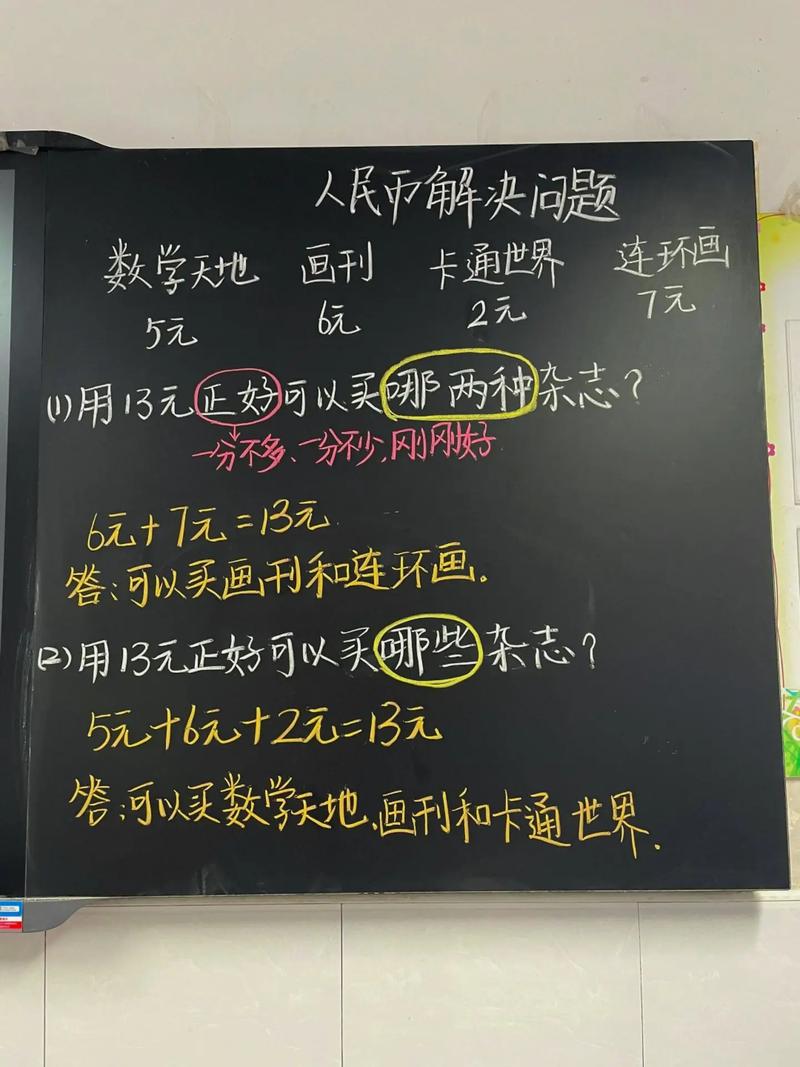 人民币解决问题
数学天地 画刊 卡通世界 连环画
5元 6元 2元 7元
(1)用13元正好可以买哪两种杂志?
一分不多、一分不少,刚刚好
6元+7元=13元
答:可以买画刊和连环画.
(2)用13元正好可以买哪些杂志?
5元+6元+2元=13元
答:可以买数学天地、画刊和卡通世界.